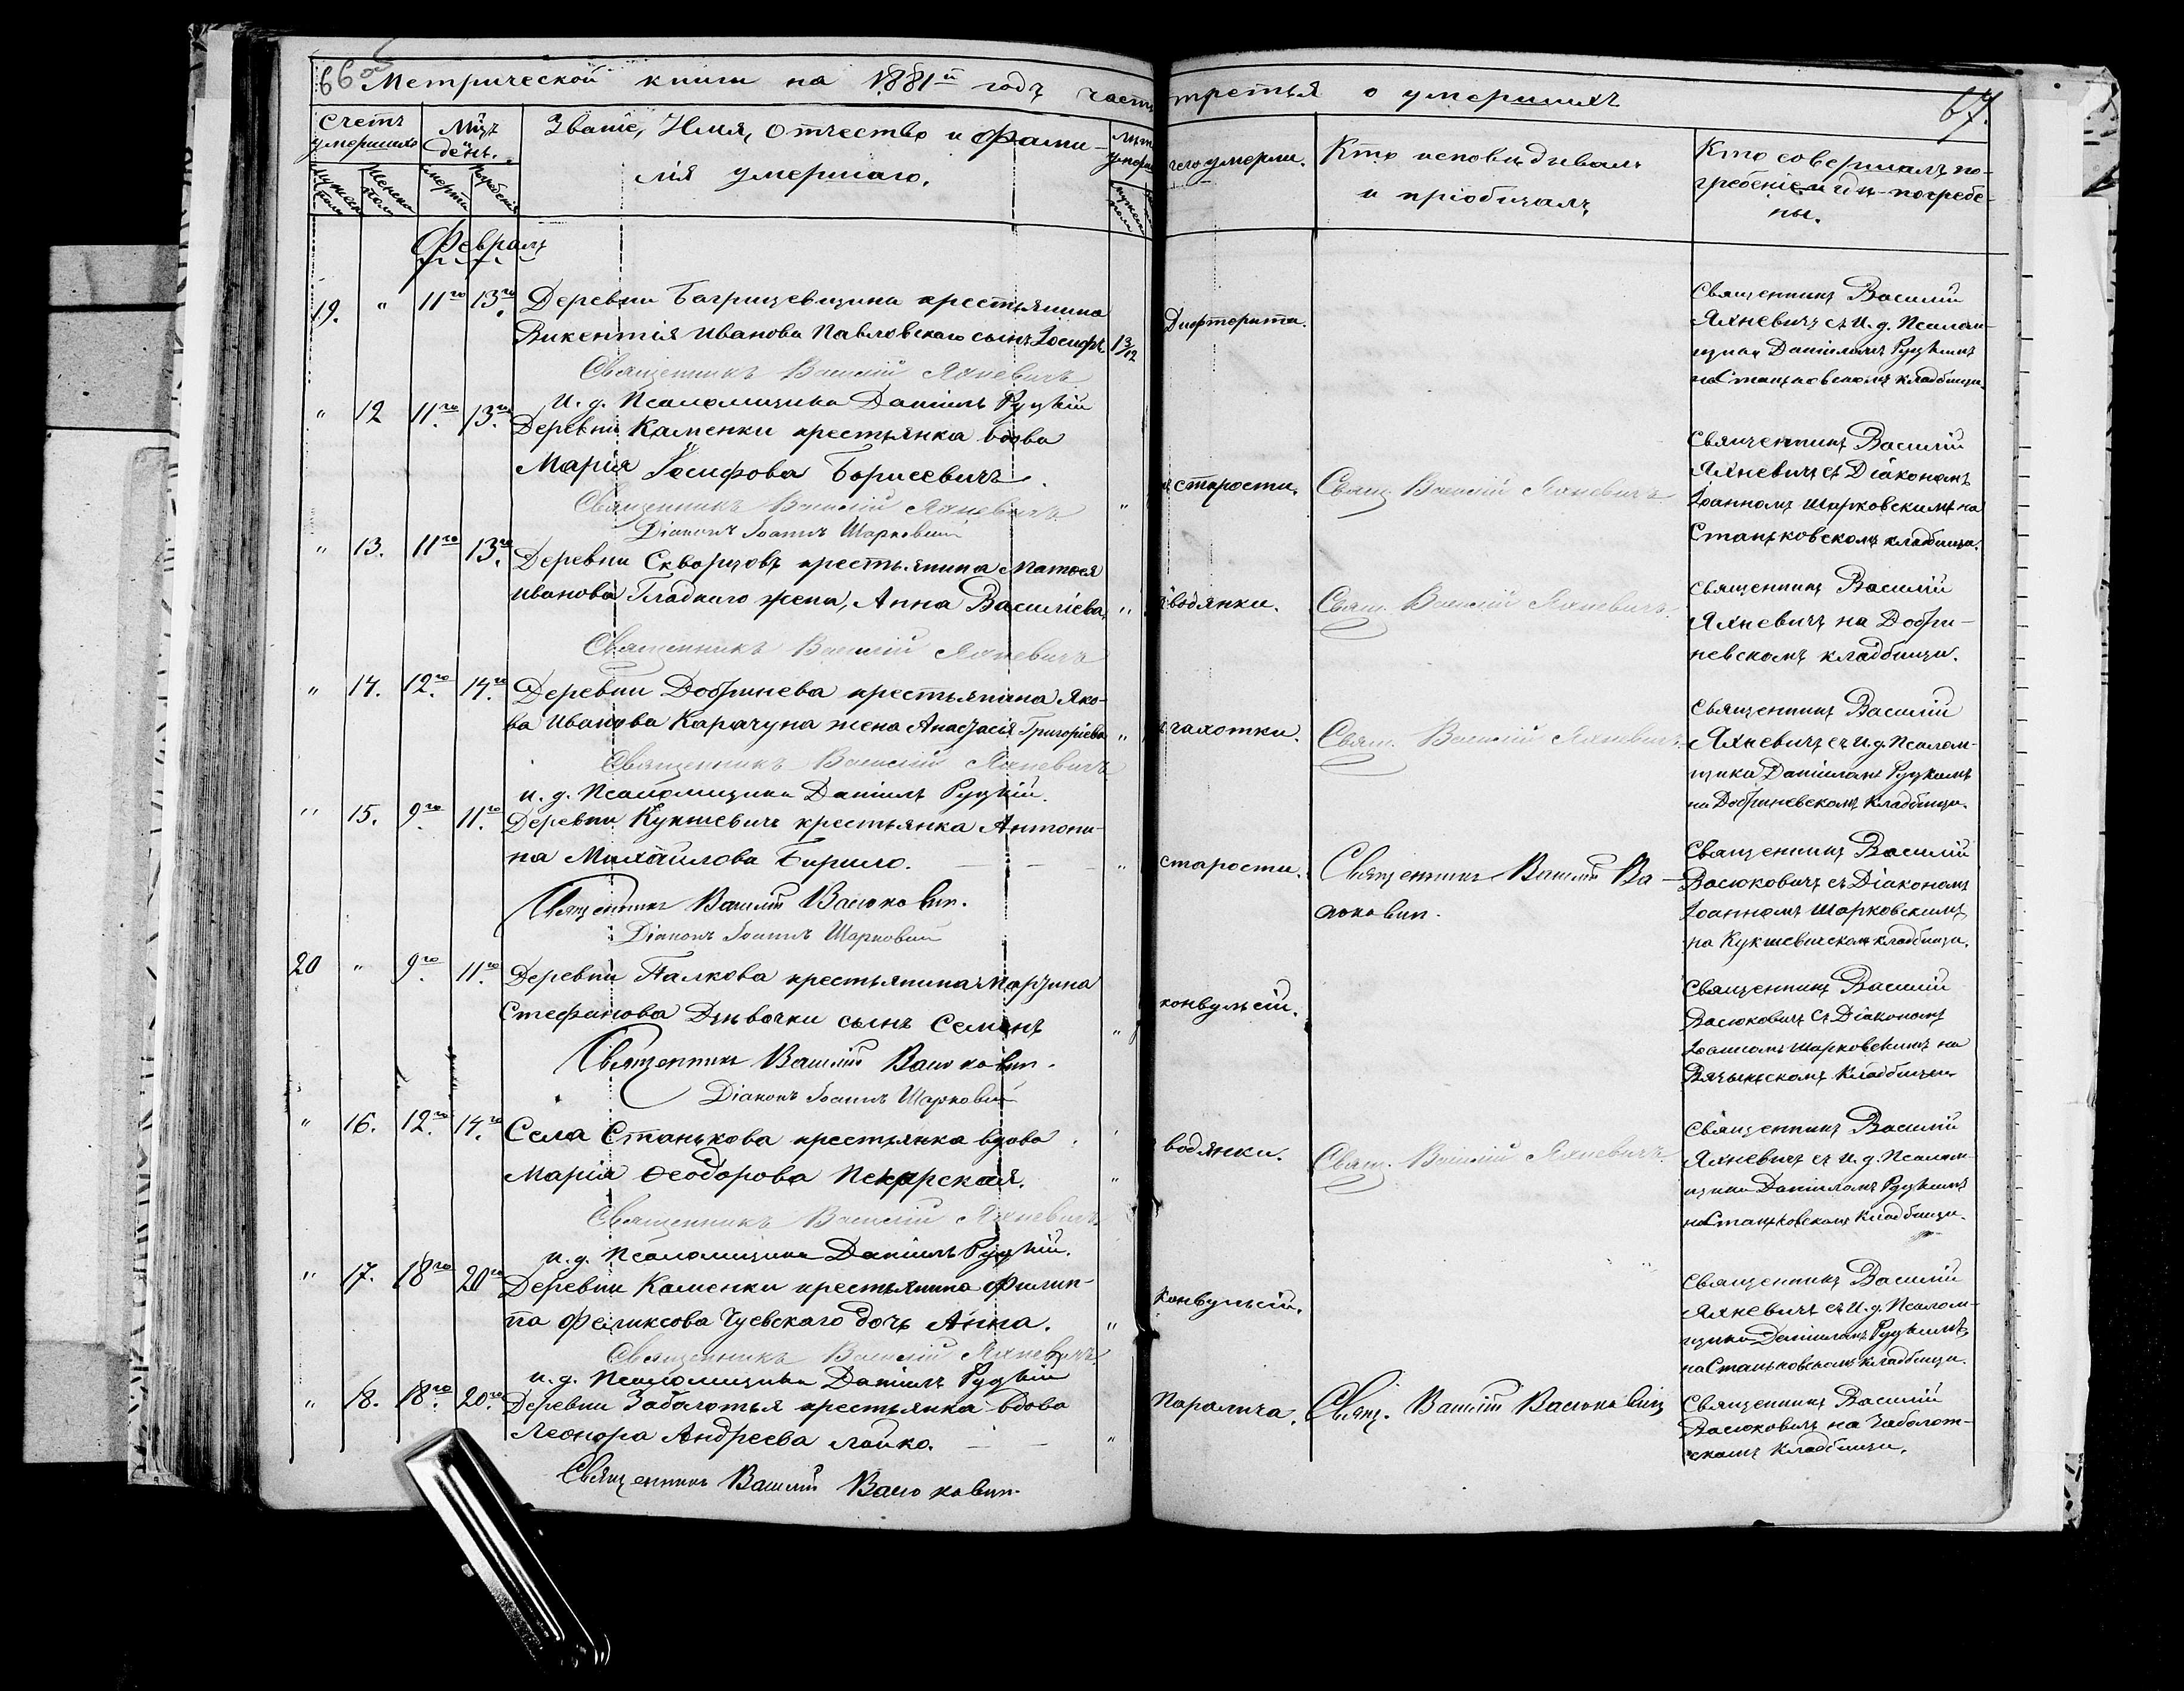 66 об Метрической книги на 1881й годъ часть третья о умершихъ 67.
Счетъ умершихъ
Мцъ день.
Званіе, Имя, Отчество и Фами-
лія умершаго.
чего умерли.
Кто исповѣдывалъ
и пріобщалъ,
Кто совершалъ по-
гребеніе и гдѣ погребе-
ны.
Февраль
19. " 11го 13го Деревни Багрицевщина крестьянина
Викентія Иванова Павловскаго сынъ Іосифъ 1 3/12
Священникъ Василій Яхневичъ
И. д. Псаломщика Даніилъ Руцкій
Дифтерита.
Священникъ Василій
Яхневичъ съ И. д. Псалом-
щика Даніиломъ Руцкимъ
на Станьковскомъ кладбищѣ.
" 12 11го 13го Деревни Каменки крестьянка вдова
Марія Іосифова Борисевичъ.
Священникъ Василій Яхневичъ "
Діаконъ Іоаннъ Шарковскій
старости.
Свящ. Василій Яхневичъ
Священникъ Василій
Яхневичъ съ Діакономъ
Іоанномъ Шарковскимъ на
Станьковскомъ кладбищѣ.
" 13. 11го 13го Деревни Скворцовъ крестьянина Матѳея
Иванова Гладкаго жена, Анна Василіева "
Священникъ Василій Яхневичъ
водянки.
Свящ. Василій Яхневичъ
Священникъ Василій
Яхневичъ на Добри-
невскомъ кладбищѣ.
" 14. 12го 14го Деревни Добринева крестьянина Яко-
ва Иванова Карачуна жена Анастасія Григоріева "
Священникъ Василій Яхневичъ
и. д. Псаломщика Даніилъ Руцкій.
чахотки.
Свящ. Василій Яхневичъ
Священникъ Василій
Яхневичъ съ И. д. Псалом-
щика Даніиломъ Руцкимъ
на Добриневскомъ кладбищѣ.
" 15. 9го 11го Деревни Кукшевичъ крестьянка Антони-
на Михайлова Бирило. "
Священникъ Василій Васюковичъ.
Діаконъ Іоаннъ Шарковскій
старости.
Священникъ Василій Ва-
сюковичъ.
Священникъ Василій
Васюковичъ съ Діакономъ
Іоанномъ Шарковскимъ
на Кукшевичскомъ кладбищѣ.
20 " 9го 11го Деревни Палкова крестьянина Марціна
Стефанова Дѣвочки сынъ Семенъ "
Священникъ Василій Васюковичъ.
Діаконъ Іоаннъ Шарковскій
конвульсіи.
Священникъ Василій
Васюковичъ съ Діакономъ
Іоанномъ Шарковскимъ на
кладбищѣ
" 16. 12го 14го Села Станькова крестьянка вдова
Марія Ѳеодорова Пекарская. "
Священникъ Василій Яхневичъ
и. д. Псаломщика Даніилъ Руцкій.
водянки.
Свящ. Василій Яхневичъ
Священникъ Василій
Яхневичъ съ и. д. Псалом-
щика Даніиломъ Руцкимъ
на Станьковскомъ кладбищѣ.
" 17. 18го 20го Деревни Каменки крестьянина Филип-
па Феликсова Чуевскаго дочь Анна. "
Священникъ Василій Яхневичъ
и. д. Псаломщика Даніилъ Руцкій
конвульсіи.
Священникъ Василій
Яхневичъ съ И. д. Псалом-
щика Даніиломъ Руцкимъ
на Станьковскомъ кладбищѣ.
" 18. 18го 20го Деревни Заболотья крестьянка вдова
Леонора Андреева Лойко. "
Священникъ Василій Васюковичъ
Паралича.
Свящ. Василій Васюковичъ
Священникъ Василій
Васюковичъ на Заболот-
скомъ кладбищѣ.